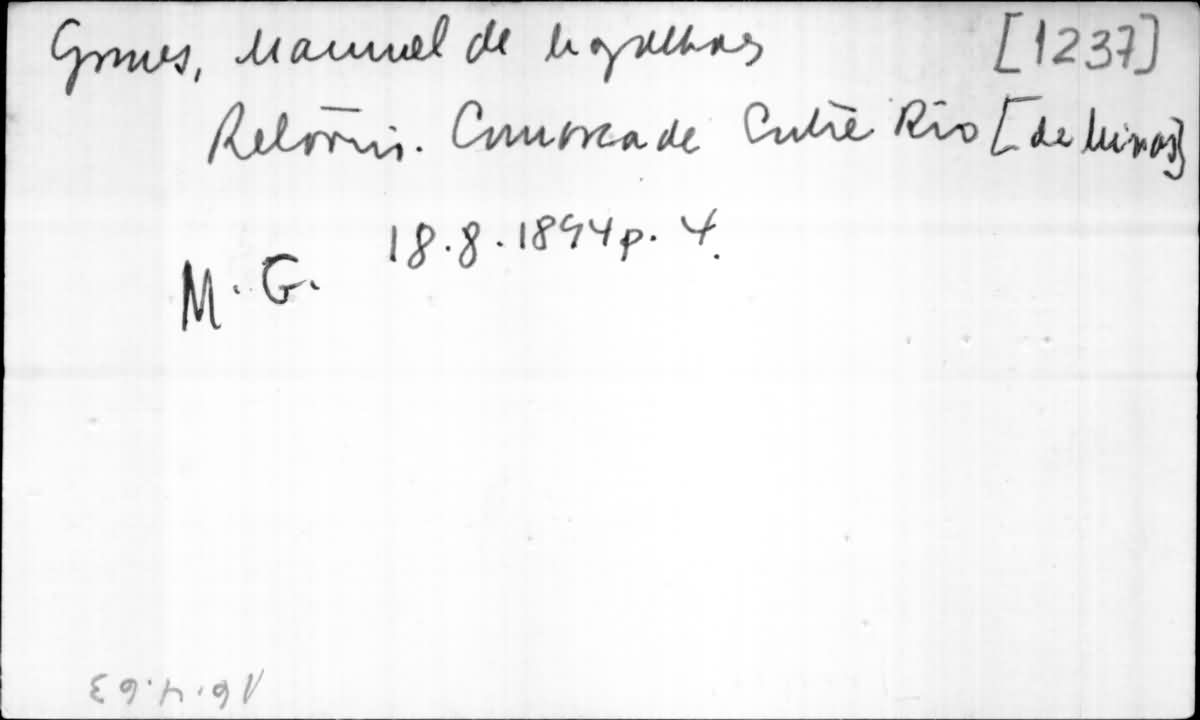 Gomes, Manuel de Magalhães [1237]
Relatório. Comarca de Entre Rio [de Minas]
M. G. 18.8.1894 p. 4.
16.4.63